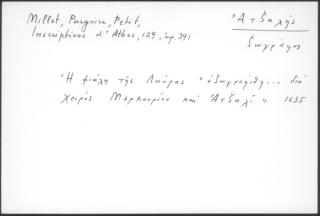 Millet, Pargoire, Petit,
Inscriptions d'Athos, 129, ἀρ. 391
Ἀτζαλῆς
ζωγράφος
Ἡ φιάλη τῆς Λαύρας "ἐζωγραφήθη... διὰ
χειρὸς Μερκουρίου καὶ Ἀτζαλῆ" 1635